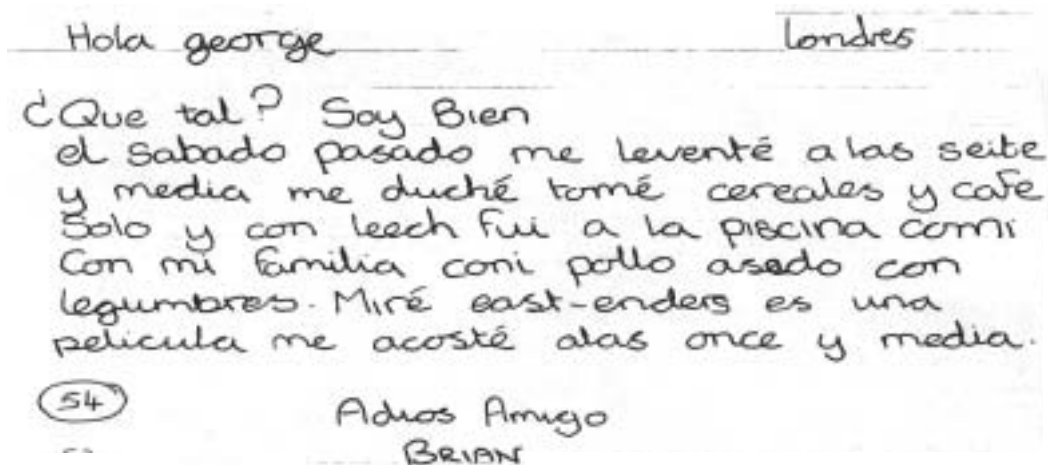 Hola george Londres
¿Que tal? Soy Bien
el Sabado pasado me leventé alas seite
y media me duché tomé cereales y cafe
Solo y con leech fui a la piscina comi
Con mi familia coni pollo asado con
legumbres. Miré east-enders es una
pelicula me acosté alas once y media.
54
Adios Amigo
BRIAN